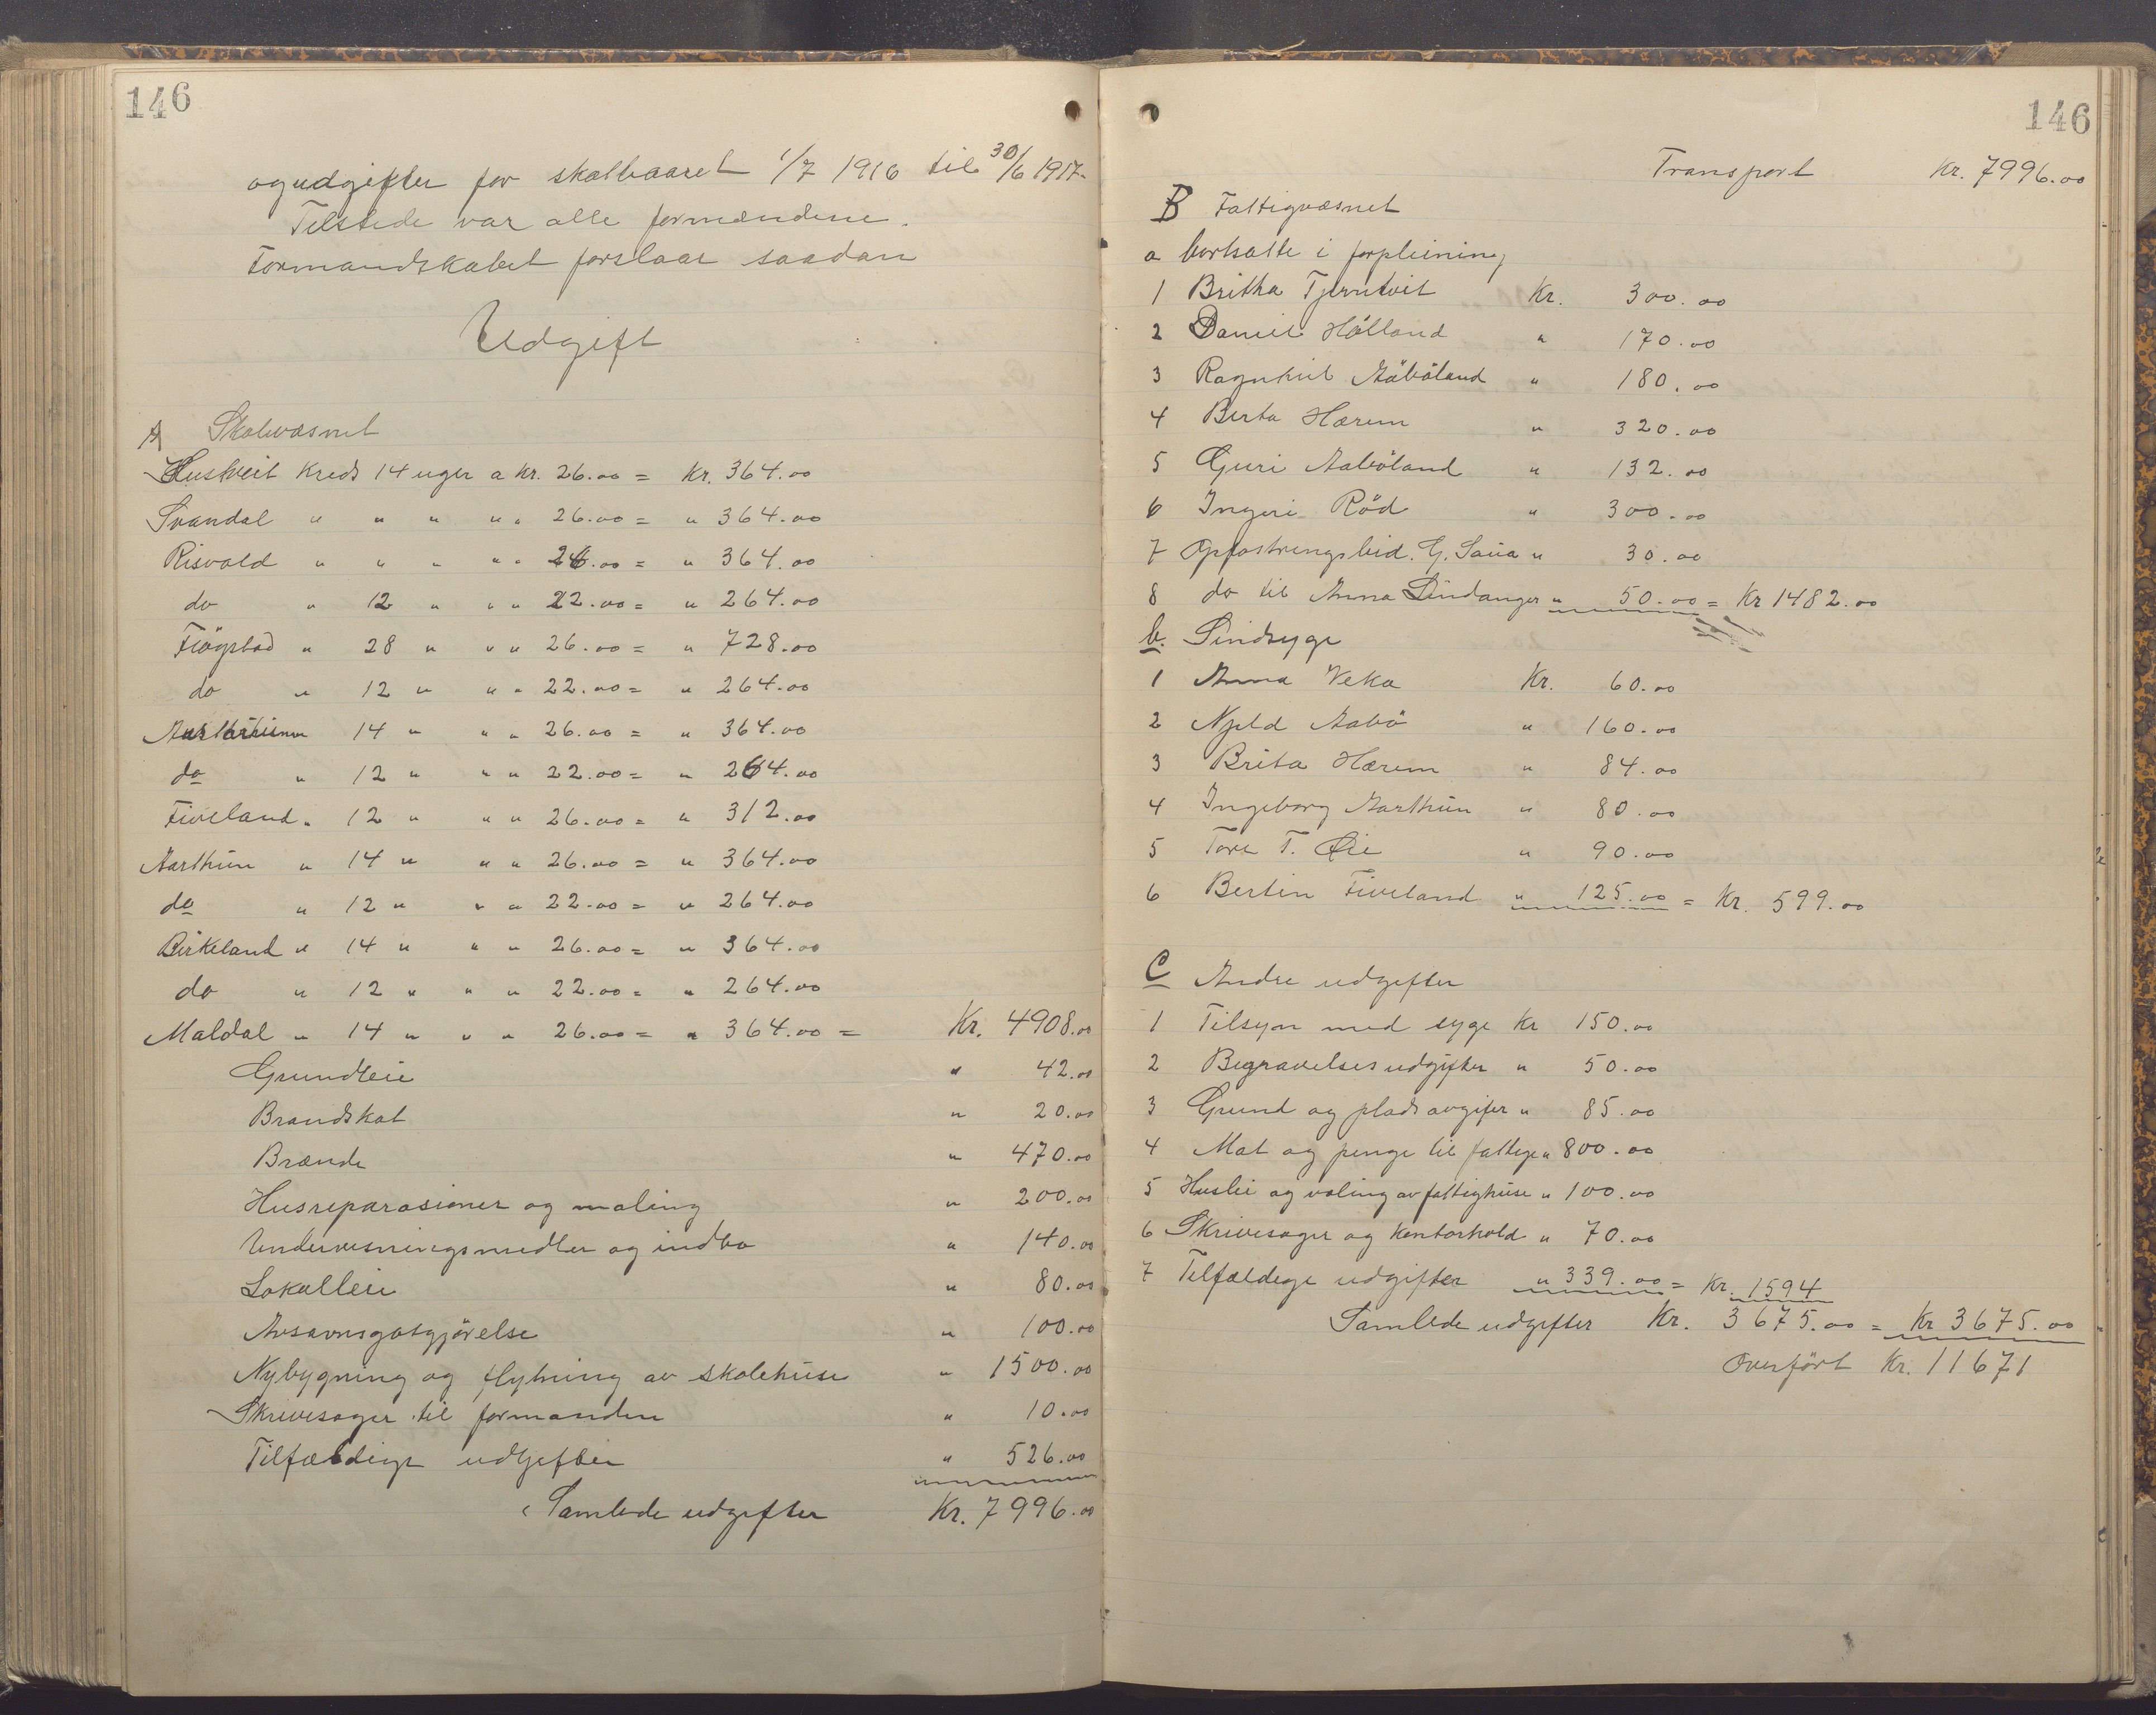 146
og udgifter for skatteaaret 1/7 1916 til 30/6 1917.
Tilstede var alle formændene.
Formandskabet forslaar saadan
Udgift
A Skolevæsnet
Hustveit Kreds 14 uger a kr. 26.00 = Kr. 364.00
Svandal " " " " " 26.00 = " 364.00
Risvold " " " " " 26.00 = " 364.00
do " 12 " " " 22.00 = " 264.00
Fiögstad " 28 " " " 26.00 = " 728.00
do " 12 " " " 22.00 = " 264.00
14 " " " 26.00 = " 364.00
do " 12 " " " 22.00 = " 264.00
Fiveland " 12 " " " 26.00 = " 312.00
Aarthun " 14 " " " 26.00 = " 364.00
do " 12 " " " 22.00 = " 264.00
Birkeland " 14 " " " 26.00 = " 364.00
do " 12 " " " 22.00 = " 264.00
Maldal " 14 " " " 26.00 = " 364.00 = Kr. 4908.00
Grundleie " 42.00
Brandskat " 20.00
Brænde " 470.00
Husreparasioner og maling " 200.00
Undervisningsmidler og indbo " 140.00
Lokalleie " 80.00
Avsavnsgotgjörelse " 100.00
Nybygning og flytning av skolehuse " 1500.00
Skrivesager til formanden " 10.00
Tilfældige udgifter " 526.00
Samlede udgifter Kr. 7996.00
146
Transport Kr. 7996.00
B Fattigvæsnet
a bortsatte i forpleining
1 Britha Tjerntveit Kr. 300.00
2 Daniel Hölland " 170.00
3 Ragnhil Aaböland " 180.00
4 Berta Hærem " 320.00
5 Guri Aaböland " 132.00
6 Ingeri Röd " 300.00
7 Opfostringsbid. G. Saua " 30.00
8 do til Anna Lindanger " 50.00 = Kr 1482.00
b. Sindsyge
1 Anna Veka Kr. 60.00
2 Njeld Aabö " 160.00
3 Brita Hærem " 84.00
4 Ingeborg Aarthun " 80.00
5 Tore T. Öie " 90.00
6 Bertin Fiveland " 125.00 = Kr. 599.00
C Andre udgifter
1 Tilsyn med syge Kr 150.00
2 Begravelses udgifter " 50.00
3 Grund og plads avgifer " 85.00
4 Mat og penge til fattige " 800.00
5 Huslei og voling av fattighuse " 100.00
6 Skrivesager og Kontorhold " 70.00
7 Tilfældige udgifter " 339.00 = Kr. 1594
Samlede udgifter Kr. 3675.00 = Kr 3675.00
Overfört Kr. 11671